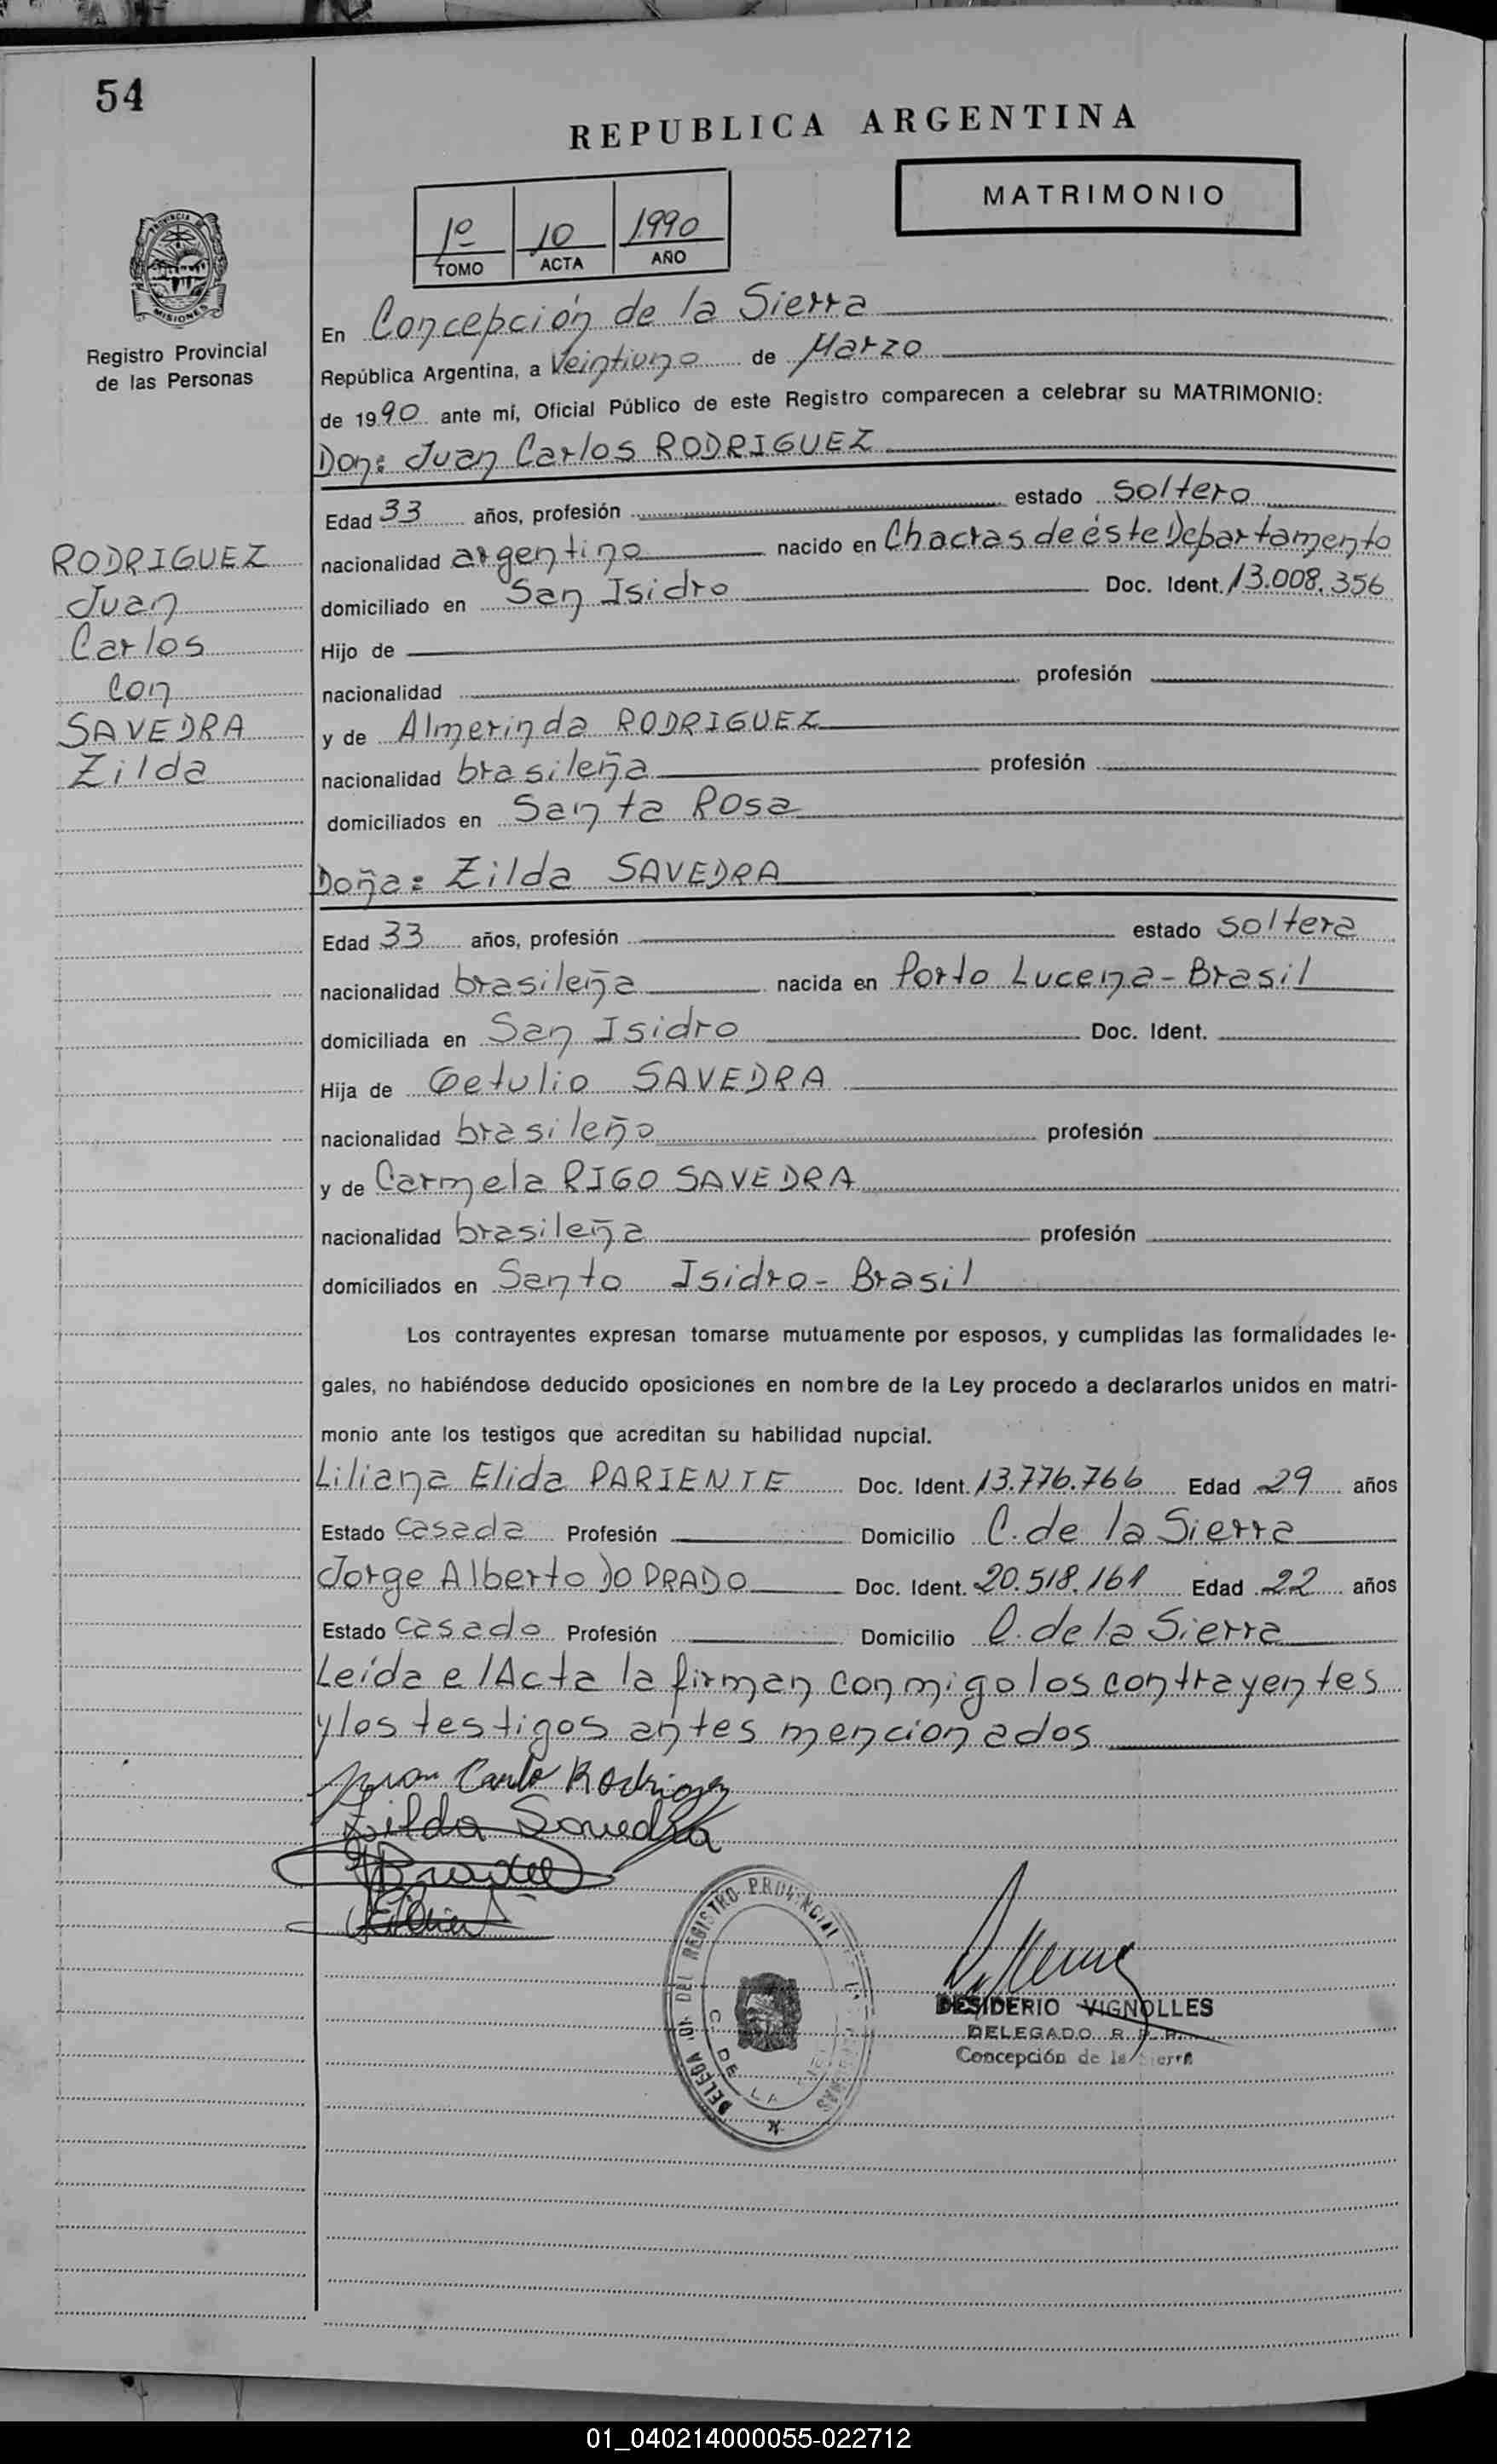 54
REPUBLICA ARGENTINA
MATRIMONIO
1º 10 1990
TOMO ACTA AÑO
PROVINCIA DE
MISIONES
Registro Provincial
de las Personas
En Concepción de la Sierra
República Argentina, a Veintiuno de Marzo
de 1990 ante mí, Oficial Público de este Registro comparecen a celebrar su MATRIMONIO:
Don: Juan Carlos RODRIGUEZ
Edad 33 años, profesión estado soltero
nacionalidad argentino nacido en Chacras de éste Departamento
domiciliado en San Isidro Doc. Ident. 13.008.356
Hijo de
nacionalidad profesión
y de Almerinda RODRIGUEZ
nacionalidad brasileña profesión
domiciliados en Santa Rosa
RODRIGUEZ
Juan
Carlos
con
SAVEDRA
Zilda
Doña: Zilda SAVEDRA
Edad 33 años, profesión estado soltera
nacionalidad brasileña nacida en Porto Lucena - Brasil
domiciliada en San Isidro Doc. Ident.
Hija de Getulio SAVEDRA
nacionalidad brasileño profesión
y de Carmela RIGO SAVEDRA
nacionalidad brasileña profesión
domiciliados en Santo Isidro - Brasil
Los contrayentes expresan tomarse mutuamente por esposos, y cumplidas las formalidades le-
gales, no habiéndose deducido oposiciones en nombre de la Ley procedo a declararlos unidos en matri-
monio ante los testigos que acreditan su habilidad nupcial.
Liliana Elida PARIENTE Doc. Ident. 13.776.766 Edad 29 años
Estado casada Profesión Domicilio C. de la Sierra
Jorge Alberto DO PRADO Doc. Ident. 20.518.161 Edad 22 años
Estado casado Profesión Domicilio C. de la Sierra
Leída el Acta la firman conmigo los contrayentes
y los testigos antes mencionados
Juan Carlo Rodriguez
Zilda Savedra
DEL REGISTRO PROVINCIAL
C. DE LA
DESIDERIO VIGNOLLES
DELEGADO R. P. P.
Concepción de la Sierra
01_040214000055-022712